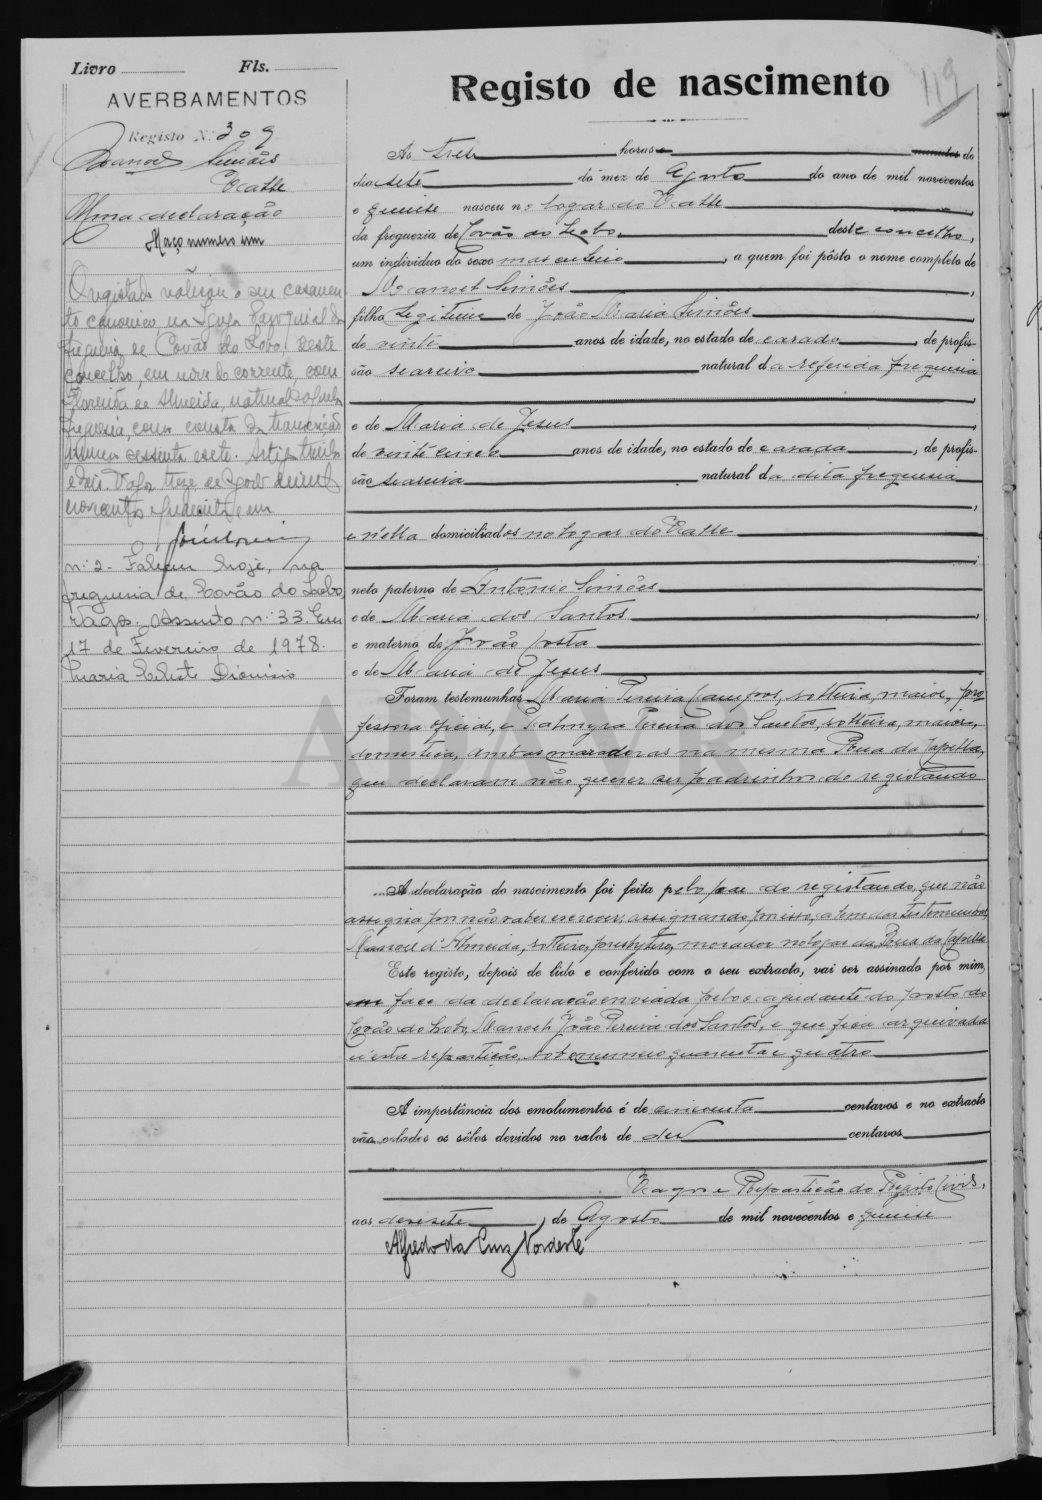 Livro Fls.
AVERBAMENTOS
Registo N.º 309
Manoel Simões
Catte
Uma declaração
Maço numero um
O registado realisou o seu casamen
to canonico na Igreja Paroquial da
freguesia de Covão do Lobo, deste
concelho, em nove do corrente, com
Florinda de Almeida, natural daquela
freguesia, como consta da transcrição
numero sessenta e sete.
e dois. Vagos, treze de de mil
novecentos e quarenta e um
n.º 2 - Faleceu hoje, na
freguesia de Covão do Lobo,
Vagos. Assento n.º 33. Em
17 de Fevereiro de 1978.
Maria Celeste Dionisio
119
Registo de nascimento
As tres horas e minutos do
dia sete do mez de Agosto do ano de mil novecentos
e quinse nasceu no logar do Catte
da freguezia de Covão do Lobo, deste concelho,
um individuo do sexo masculino, a quem foi pôsto o nome completo de
Manoel Simões
filho legitimo de João Maria Simões
de vinte anos de idade, no estado de casado, de profis-
são seareiro natural da referida freguesia
e de Maria de Jesus
de vinte e cinco anos de idade, no estado de casada, de profis-
são seareira natural da dita freguesia
e n'ella domiciliados no logar do Catte
neto paterno de Antonio Simões
e de Maria dos Santos
e materno de João Costa
e de Maria de Jesus
Foram testemunhas Maria Pereira Campos, solteira, maior, pro
fessora oficial, e Palmyra Pereira dos Santos, solteira, maior,
domestica, ambas moradoras na mesma Rua da Capella,
que declaram não querer ser padrinhos do registando
A declaração do nascimento foi feita pelo pae do registando, que não
assigna por não saber escrever, assignando por isso, alem das testemunhas,
Manoel d'Almeida, solteiro, presbytero, morador no logar da Rua da Capella
Este registo, depois de lido e conferido com o seu extracto, vai ser assinado por mim,
em face da declaração enviada pelo ajudante do posto do
Covão do Lobo, Manoel João Pereira dos Santos, e que fica arquivada
n'esta repartição, sob o numero quarenta e quatro
A importância dos emolumentos é de cincoenta centavos e no extracto
vão colados os sêlos devidos no valor de dez centavos
Vagos e Repartição do Registo Civil,
aos desesete, de Agosto de mil novecentos e quinse
Alfredo da Cruz Nordeste